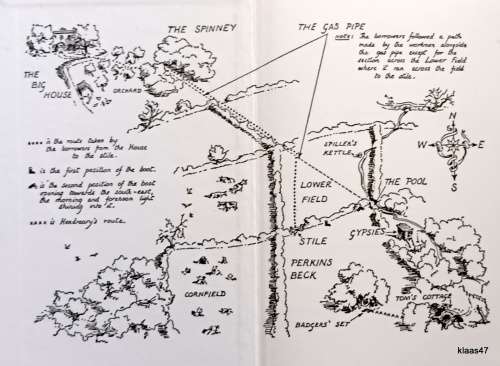 THE SPINNEY
THE GAS PIPE
NOTE: The borrowers followed a path
made by the workmen alongside
the gas pipe except for the
section across the Lower Field
where it ran across the field
to the stile.
THE
BIG
HOUSE
ORCHARD
N
W
E
S
.... is the route taken by
the borrowers from the House
to the stile.
is the first position of the boot.
is the second position of the boot
spinning towards the south-east,
the morning and forenoon light
shining into it.
is Hendreary's route.
SPILLER'S
KETTLE
LOWER
FIELD
THE POOL
GYPSIES
STILE
PERKINS
BECK
CORNFIELD
TOM'S COTTAGE
BADGERS' SET
klaas47